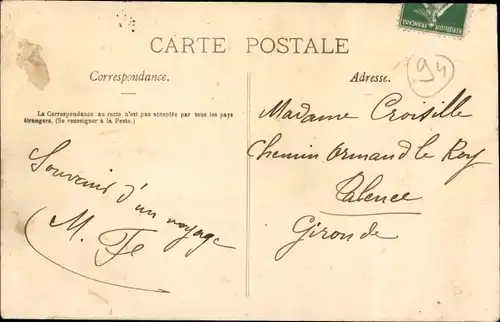 RÉPUBLIQUE FRANÇAISE
CARTE POSTALE
Correspondance.
Adresse.
94
La Correspondance au recto n'est pas acceptée par tous les pays
étrangers. (Se renseigner à la Poste.)
Souvenir d'un voyage
M. Fe
Madame Croisille
Chemin Ormand le Roy
Talence
Gironde